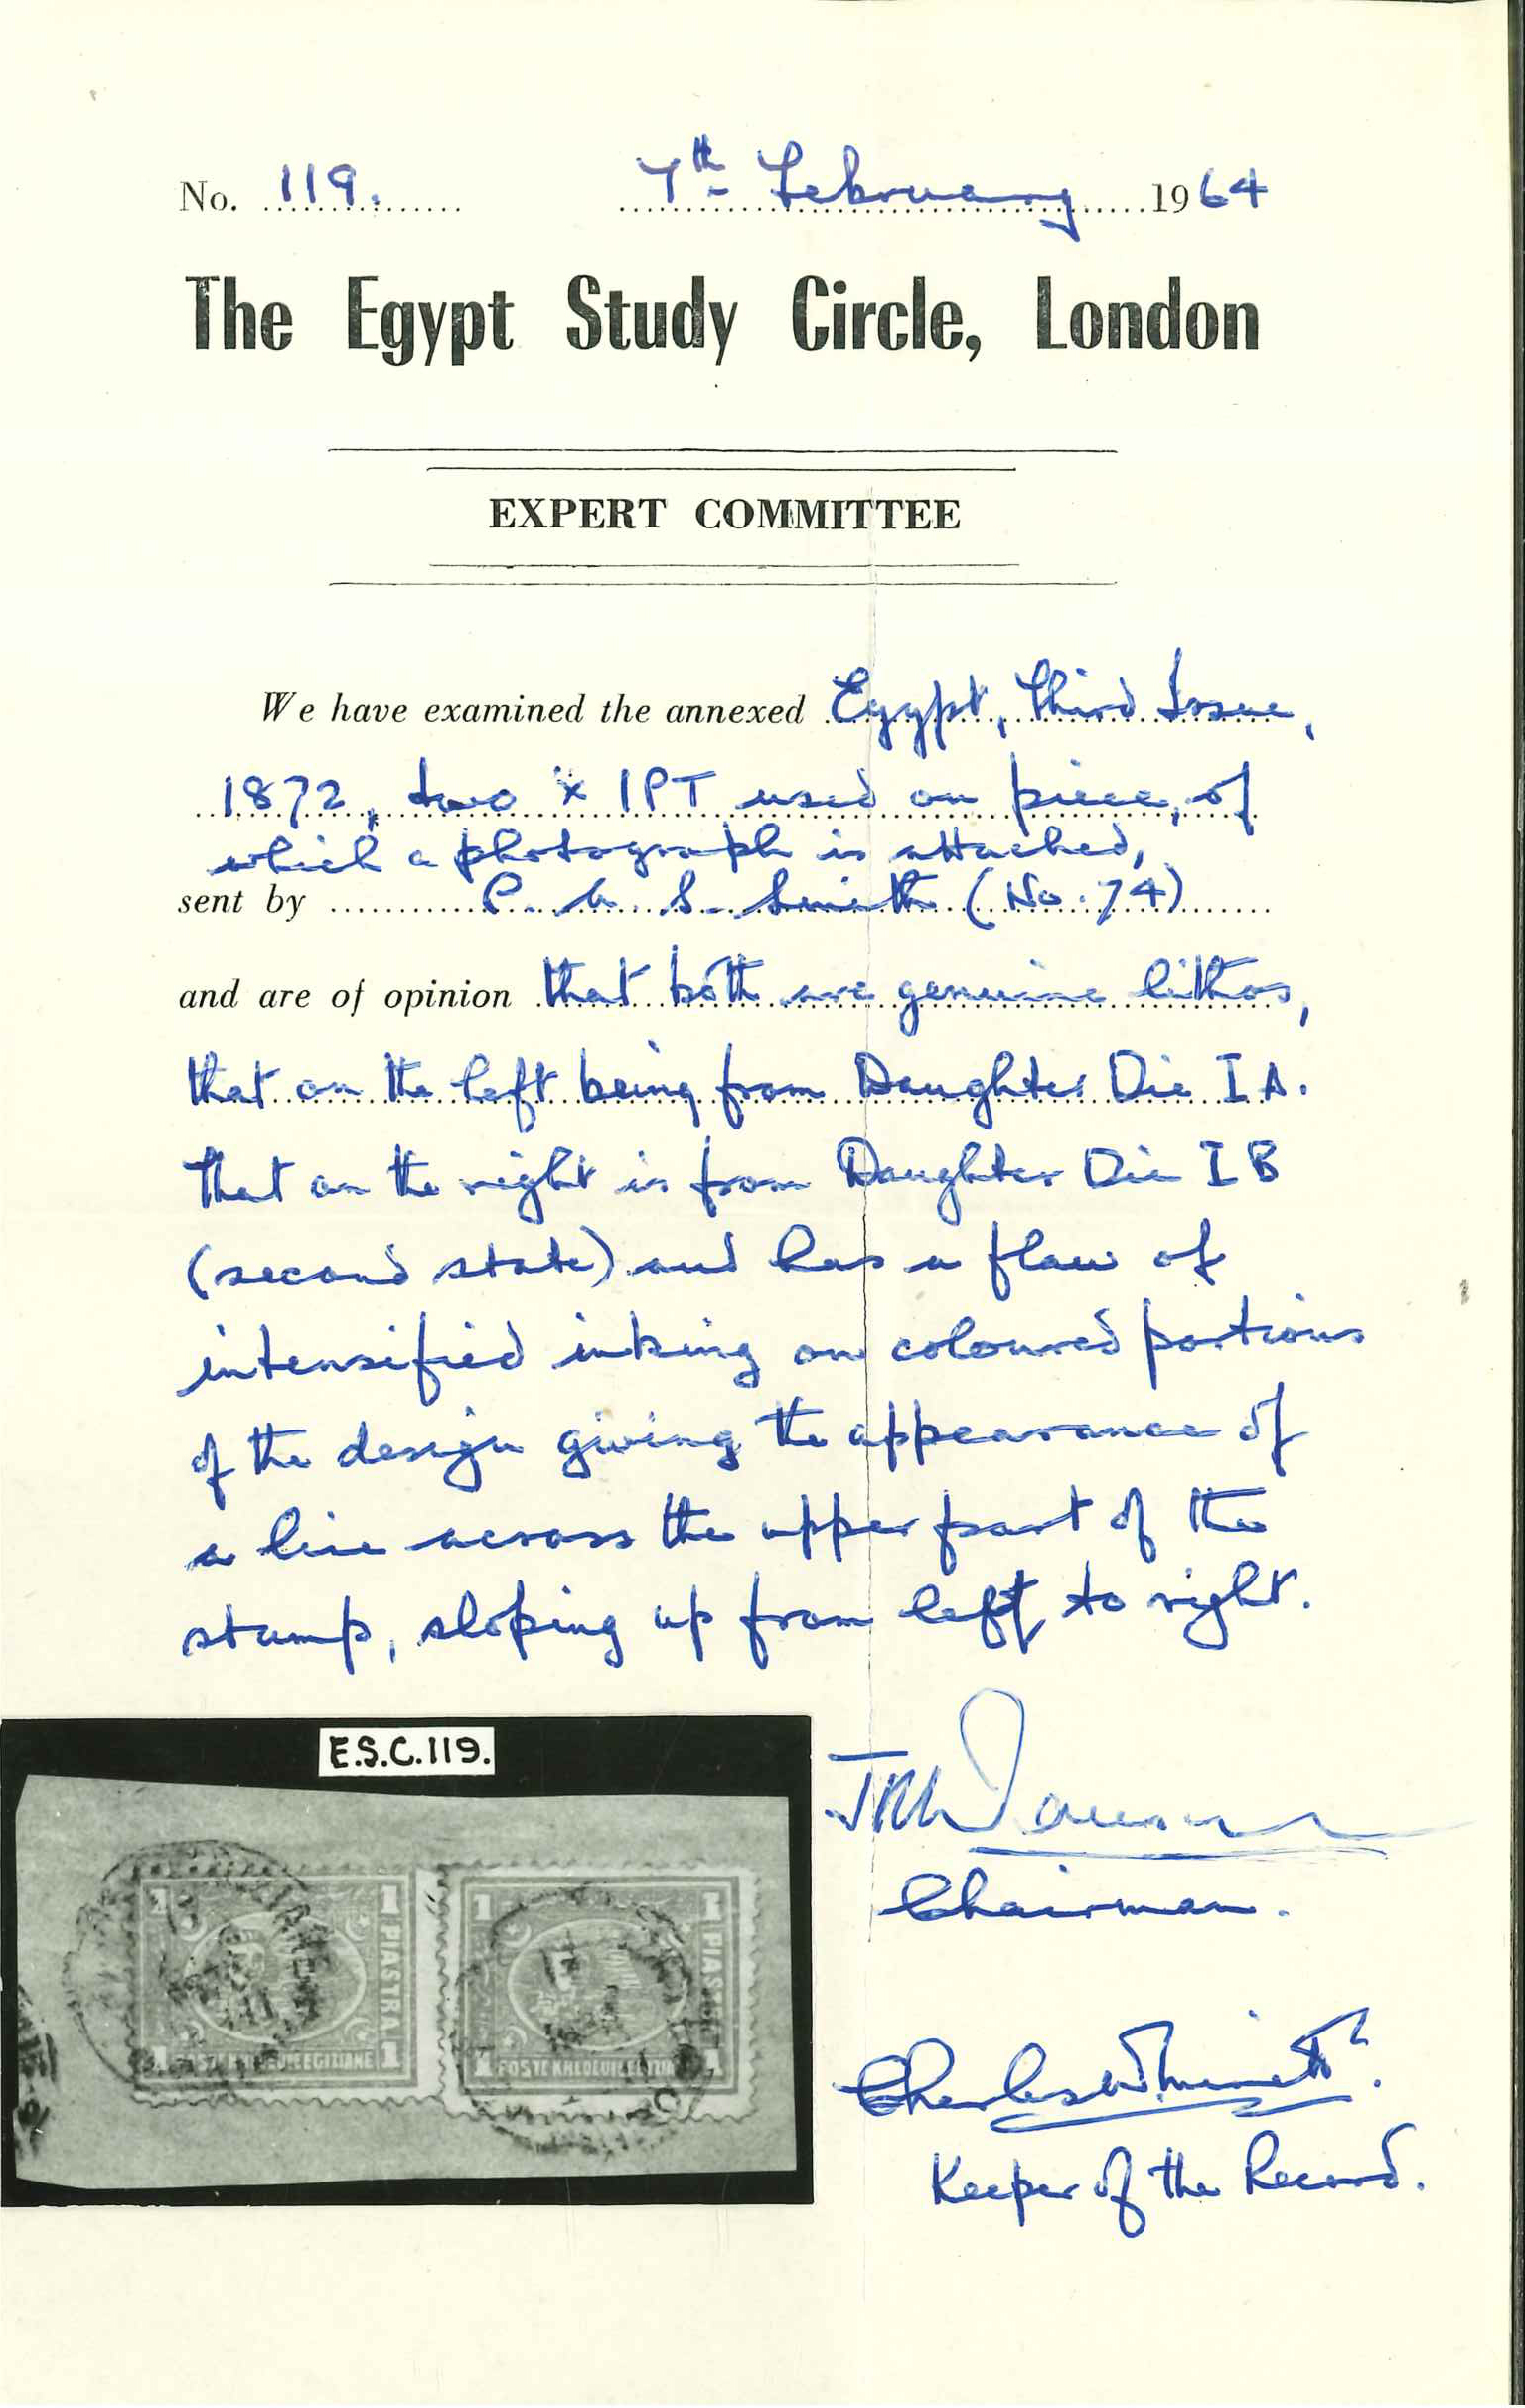 No. 119. 7th February 1964
The Egypt Study Circle, London
EXPERT COMMITTEE
We have examined the annexed Egypt, Third Issue,
1872, two x 1PT used on piece, of
which a photograph is attached,
sent by P. A. S. Smith (No. 74)
and are of opinion that both are genuine lithos,
that on the left being from Daughter Die I A.
That on the right is from Daughter Die I B
(second state) and has a flaw of
intensified inking on coloured portions
of the design giving the appearance of
a line across the upper part of the
stamp, sloping up from left to right.
E.S.C.119.
1 1 PIASTRA 1 1
1 1 1 1
Chairman.
Charles
Keeper of the Record.